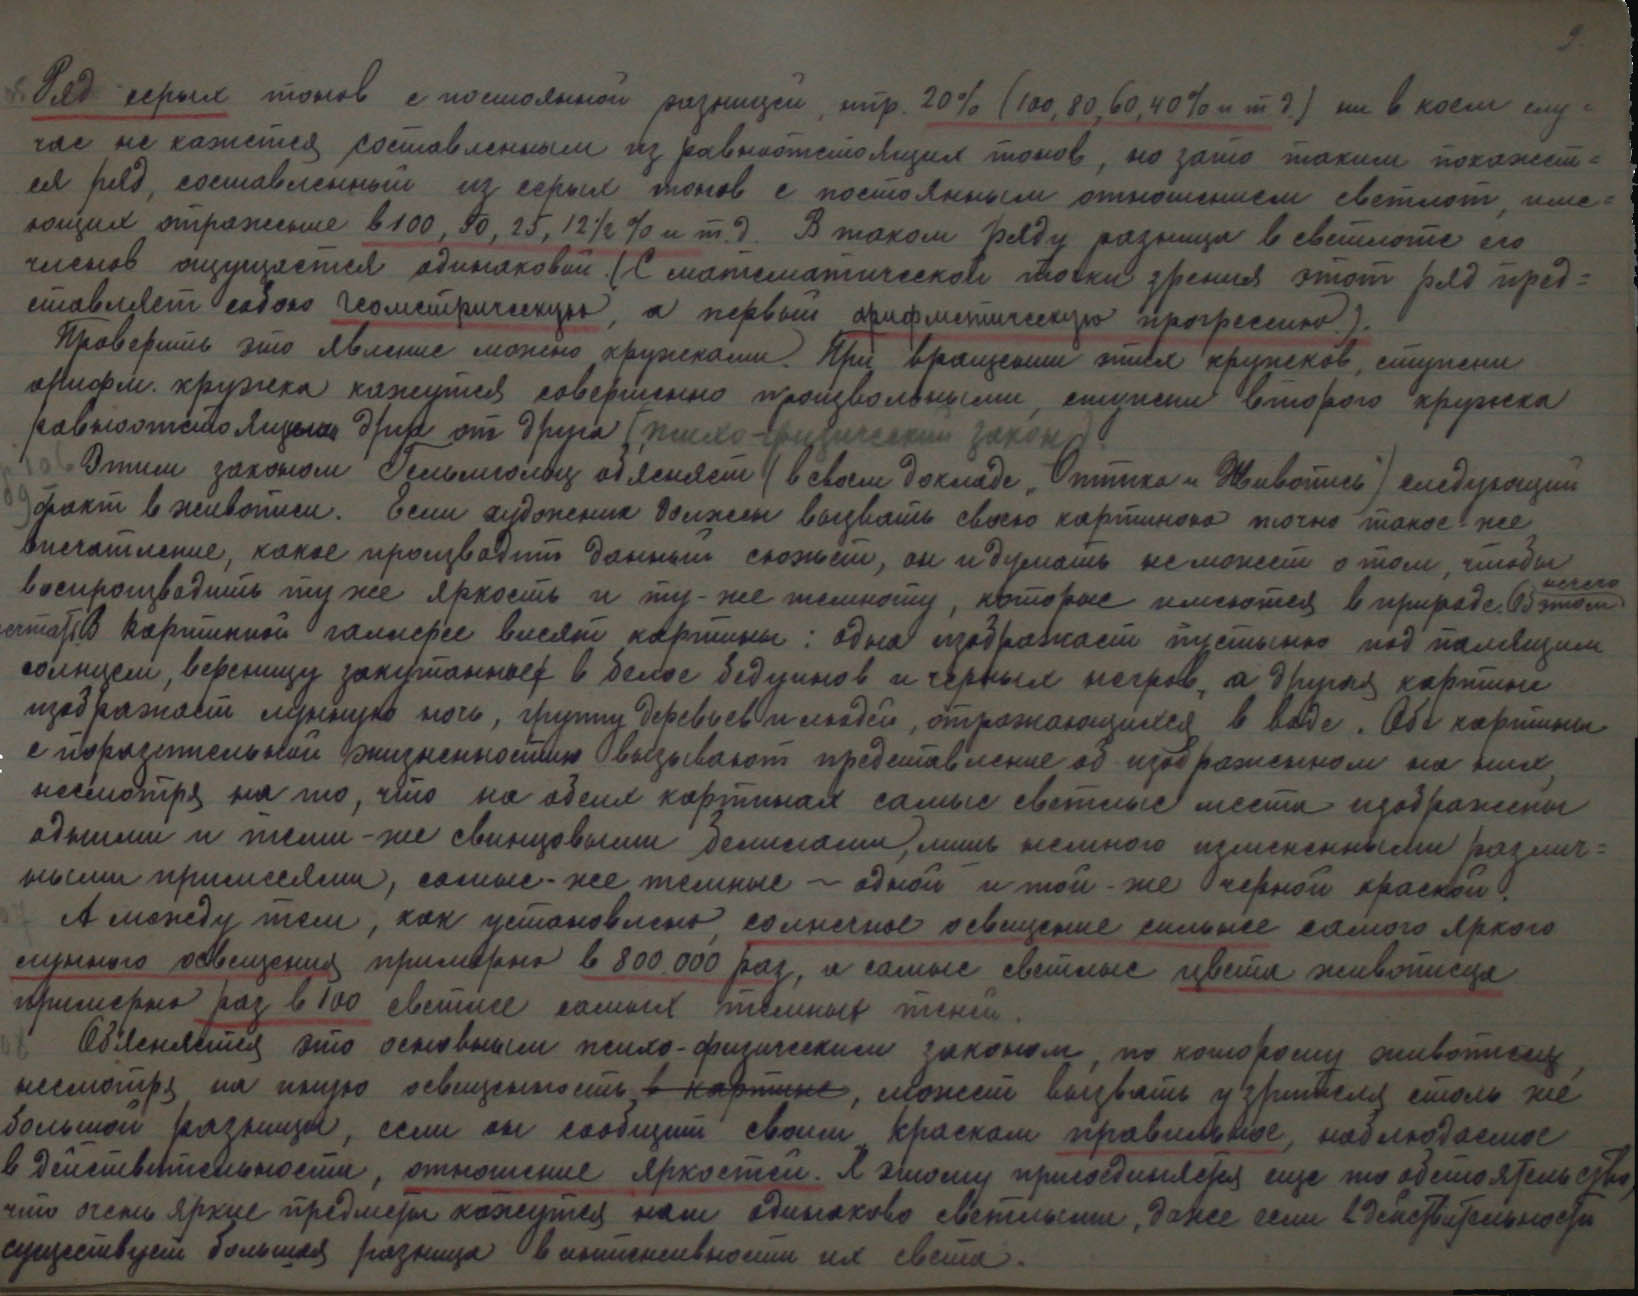 9.
Ряд серых тонов с постоянной разницей, нпр. 20% (100, 80, 60, 40% и т.д.) ни в коем слу=
чае не кажется составленным из равноотстоящих тонов, но зато таким покажет=
ся ряд, составленный из серых тонов с постоянным отношением светлот, име=
ющих отражение в 100, 50, 25, 12½% и т.д. В таком ряду разница в светлоте его
членов ощущается одинаковой. (С математической точки зрения этот ряд пред=
ставляет собою геометрическую, а первый арифметическую прогрессию.).
Проверить это явление можно кружками. При вращении этих кружков, ступени
арифм. кружка кажутся совершенно произвольными, ступени второго кружка
равноотстоящими друг от друга (психо-физический закон).
Этим законом Гельмгольц об'ясняет (в своем докладе „Оптика и Живопись") следующий
факт в живописи. Если художник должен вызвать своею картиною точно такое-же
впечатление, какое производит данный сюжет, он и думать не может о том, чтобы
воспроизводить ту же яркость и ту-же темноту, которые имеются в природе.
В картинной галлерее висят картины: одна изображает пустыню под палящим
солнцем, вереницу закутанных в белое бедуинов и черных негров, а другая картина
изображает лунную ночь, группу деревьев и людей, отражающихся в воде. Обе картины
с поразительной жизненностью вызывают представление об изображенном на них,
несмотря на то, что на обеих картинах самые светлые места изображены
одними и теми-же свинцовыми белилами, лишь немного измененными различ=
ными примесями, самые-же темные - одной и той-же черной краской.
А между тем, как установлено, солнечное освещение сильнее самого яркого
лунного освещения примерно в 800.000 раз, а самые светлые цвета живописца
примерно раз в 100 светлее самых темных теней.
Об'ясняется это основным психо-физическим законом, по которому живописец,
несмотря на иную освещенность в картине, может вызвать у зрителя столь же
большой разницы, если он сообщит своим краскам правильное, наблюдаемое
в действительности, отношение яркостей. К этому присоединяется еще то обстоятельство,
что очень яркие предметы кажутся нам одинаково светлыми, даже если в действительности
существует большая разница в интенсивности их света.